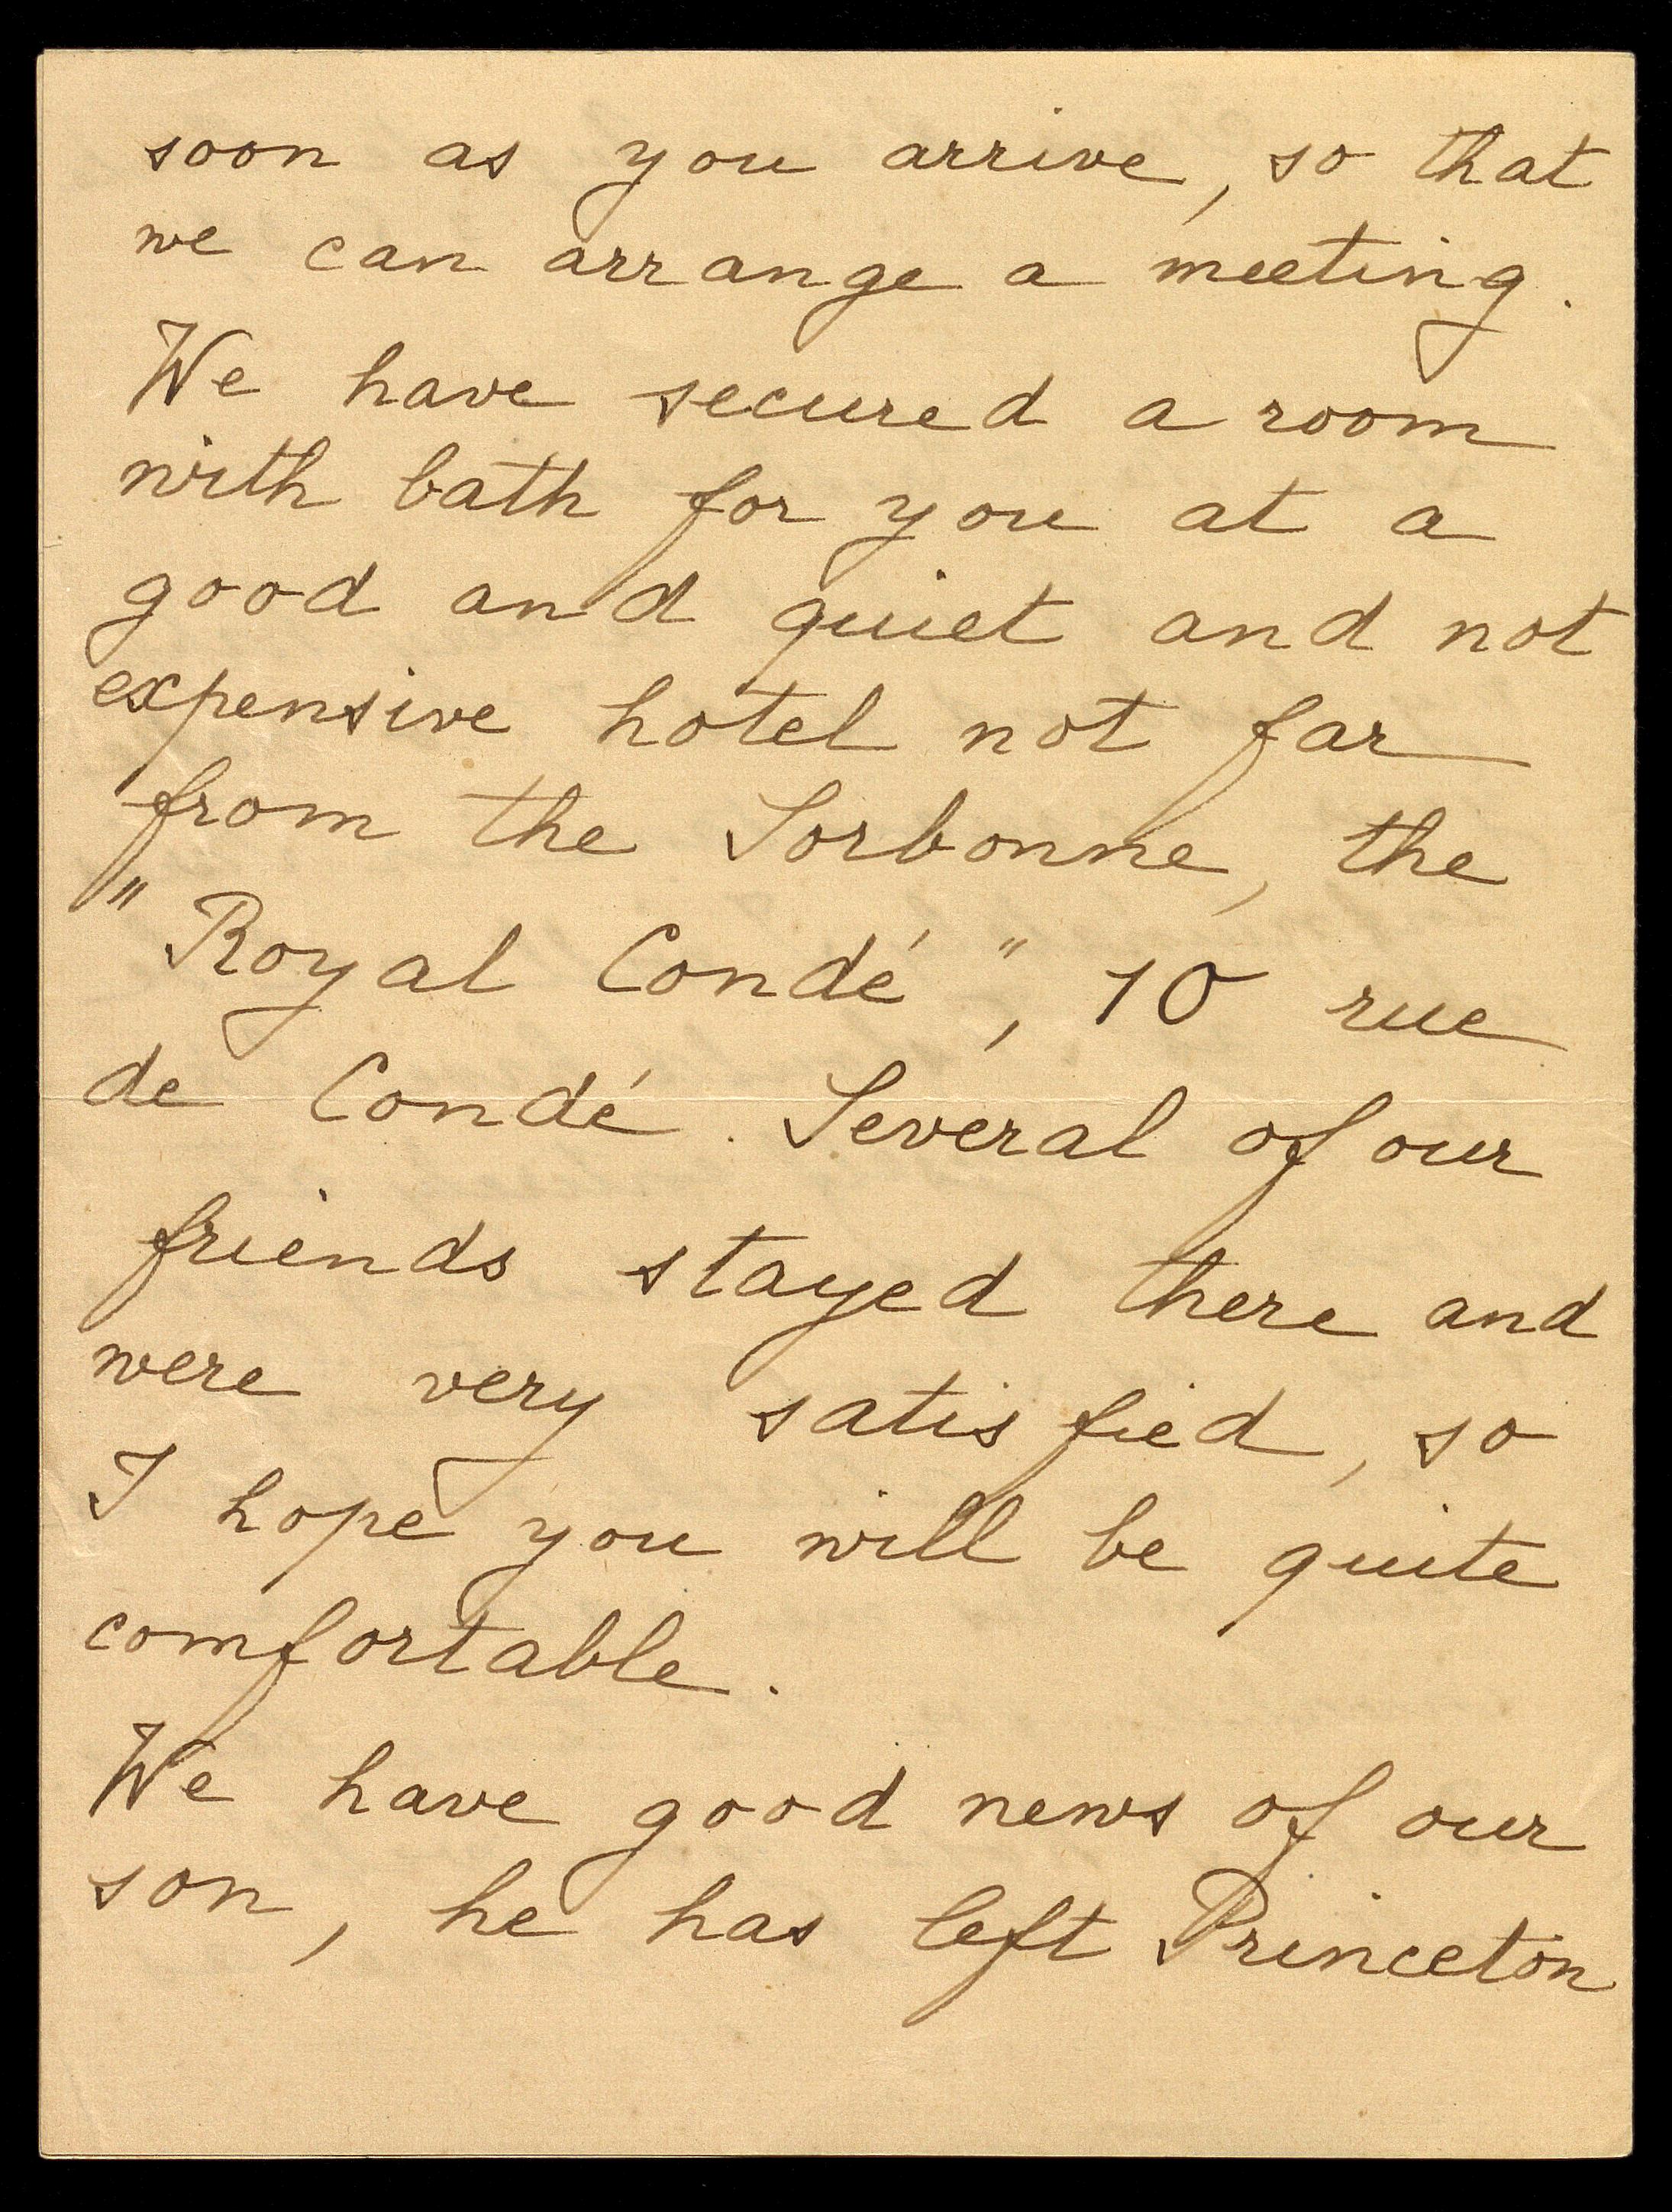 soon as you arrive, so that
we can arrange a meeting.
We have secured a room
with bath for you at a
good and quiet and not
expensive hotel not far
from the Sorbonne, the
"Royal Condé", 10 rue
de Condé. Several of our
friends stayed there and
were very satisfied, so
I hope you will be quite
comfortable.
We have good news of our
son, he has left Princeton